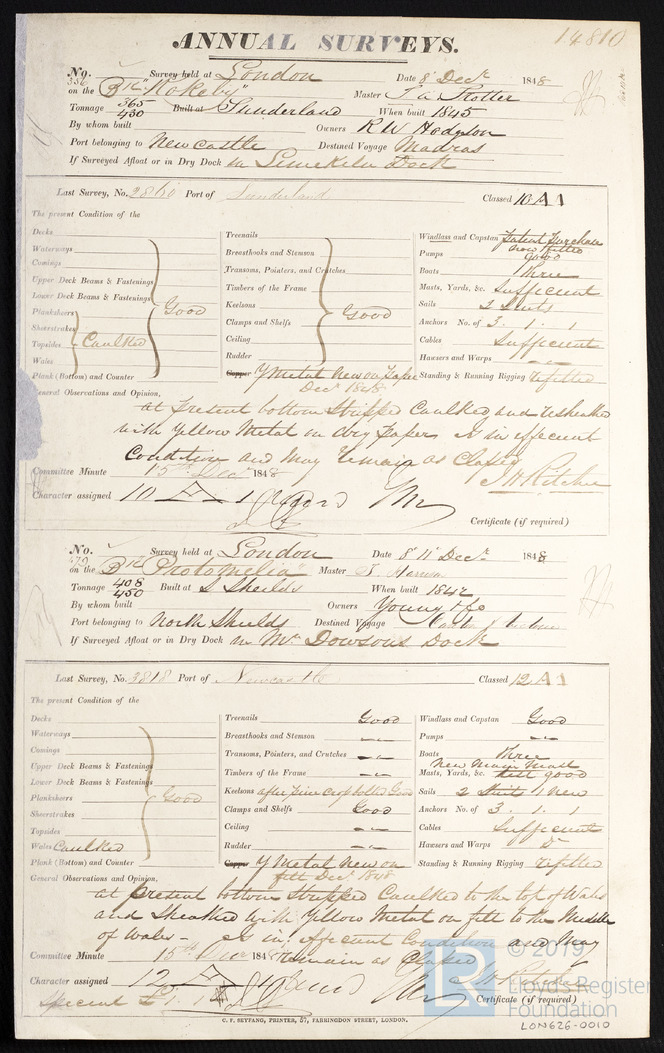 14810
ANNUAL SURVEYS.
No. 380 Survey held at London Date 8 Decr 1848
on the Bk "Rokeby" Master Trotter
Tonnage 365 Built at Sunderland When built 1845
450
By whom built Owners R W Hodgson
Port belonging to Newcastle Destined Voyage Madras
If Surveyed Afloat or in Dry Dock in Limekiln Dock
Last Survey, No. Port of Sunderland Classed 10 A 1
The present Condition of the
Decks
Waterways
Comings
Upper Deck Beams & Fastenings
Lower Deck Beams & Fastenings
Planksheers Good
Sheerstrakes
Topsides Caulked
Wales
Plank (Bottom) and Counter
Treenails
Breasthooks and Stemson
Transoms, Pointers, and Crutches
Timbers of the Frame
Keelsons Good
Clamps and Shelfs
Ceiling
Rudder
Copper Y Metal New on Paper
Decr 1848
Windlass and Capstan Patent Purchase
now fitted
Pumps Good
Boats Three
Masts, Yards, &c. Sufficient
Sails 2 Suits
Anchors No. of 3. 1. 1
Cables Sufficient
Hawsers and Warps
Standing & Running Rigging refitted
General Observations and Opinion,
at present bottom Stripped Caulked and resheathed
with Yellow Metal on dry Paper is in efficient
Condition and May remain as Classed
Committee Minute 15th Decr 1848 J H Ritchie
Character assigned 10 A 1
Certificate (if required)
No. 479 Survey held at London Date 8 11 Decr 1848
on the Bk "Protomelia" Master Harrison
Tonnage 408 Built at S Shields When built 1842
450
By whom built Owners Young & Co
Port belonging to North Shields Destined Voyage
If Surveyed Afloat or in Dry Dock in Mr Dowsons Dock
Last Survey, No. 3818 Port of Newcastle Classed 12 A 1
The present Condition of the
Decks
Waterways
Comings
Upper Deck Beams & Fastenings
Lower Deck Beams & Fastenings
Planksheers Good
Sheerstrakes
Topsides
Wales Caulked
Plank (Bottom) and Counter
Treenails Good
Breasthooks and Stemson
Transoms, Pointers, and Crutches
Timbers of the Frame
Keelsons Good
Clamps and Shelfs Good
Ceiling
Rudder
Copper Y Metal New on
felt Decr 1848
Windlass and Capstan Good
Pumps
Boats Three
New Main Mast
Masts, Yards, &c. good
Sails 2 Suits 1 New
Anchors No. of 3. 1. 1
Cables Sufficient
Hawsers and Warps Do
Standing & Running Rigging refitted
General Observations and Opinion,
at present bottom Stripped Caulked to the top of Wales
and Sheathed with Yellow Metal on felt to the Middle
of Wales - is in efficient Condition and May
Committee Minute 15th Decr 1848 remain as Classed
Character assigned 12 A 1
Certificate (if required)
C. F. SEYFANG, PRINTER, 57, FARRINGDON STREET, LONDON.
© 2019
Lloyd's Register
Foundation
LON626-0010